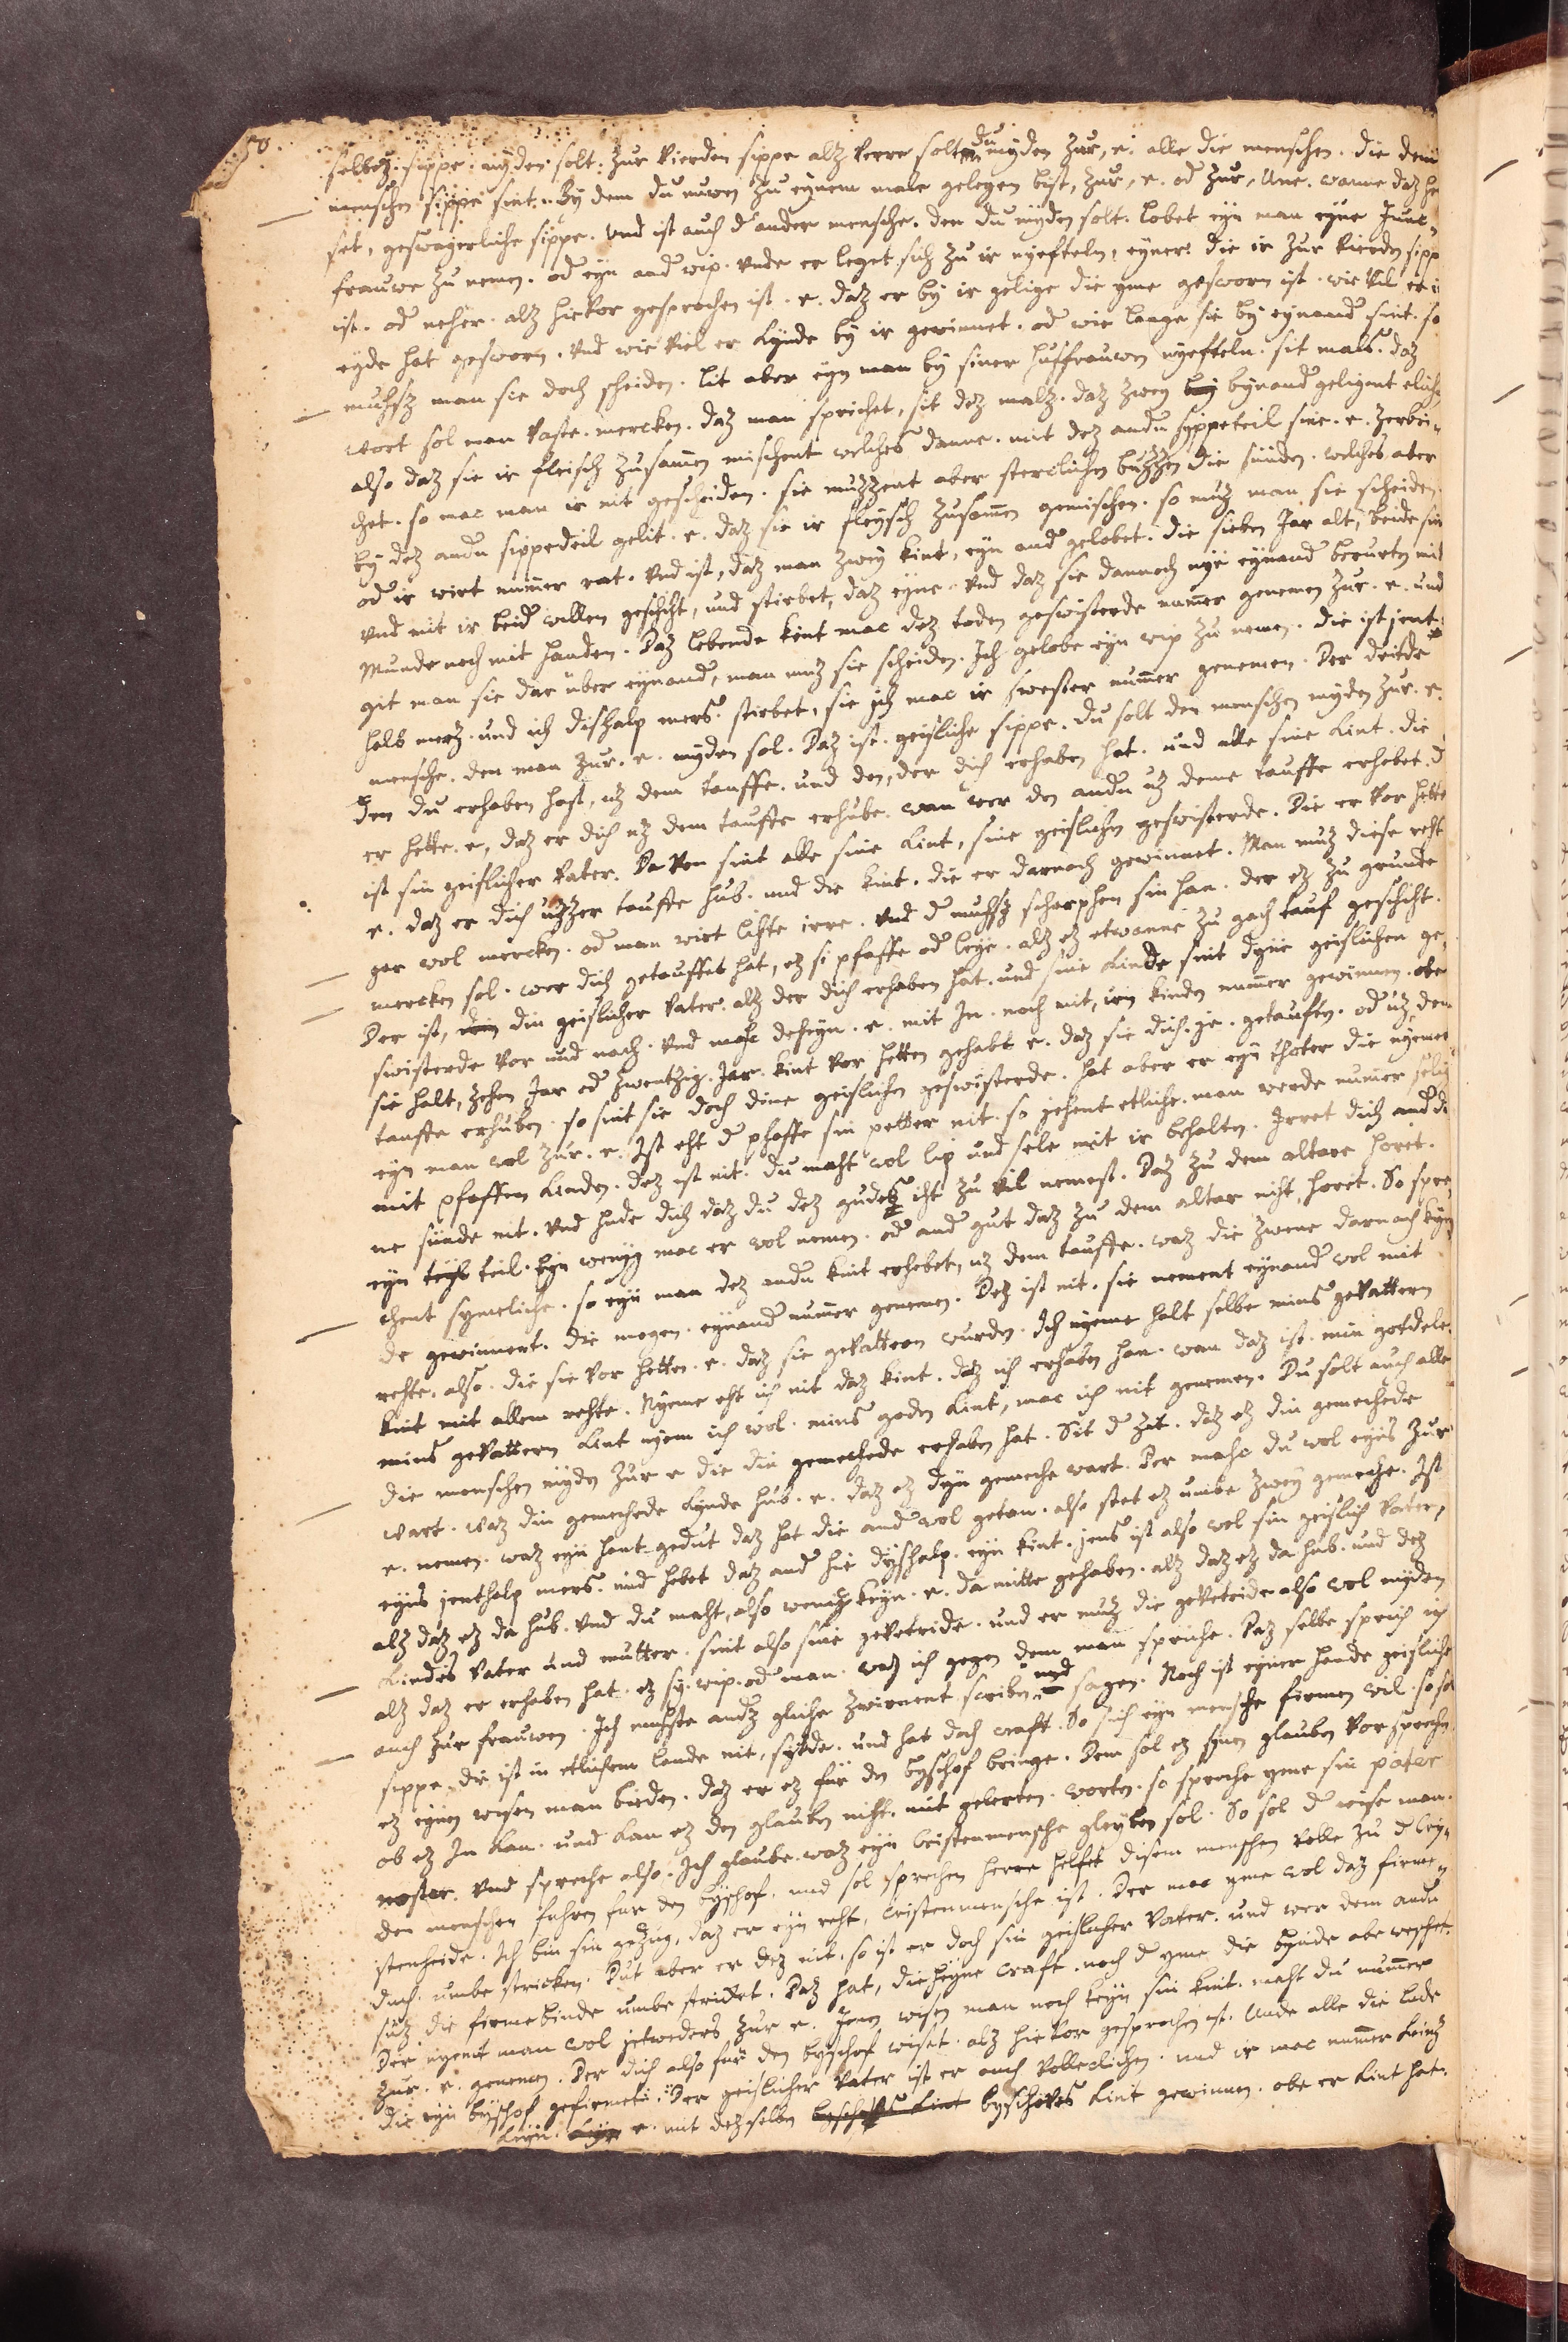 50.
selbez sippe. myden solt. zur vierden sippe alz verre solt du myden zur, e. alle die menschen. die dem
menschen sippe sint. By dem du nuwen zu eynem male gelegen bist, zur, e. od zur, Une. wanne daz he
set, geswagerliche sippe. vnd ist auch d ander mensche. den du myden solt. lobet eyn man eyne Junc,
frauwe zu nemen. od eyn and wip. vnde er leget sich zu ir nyefteln, eyner. die ir zur vierden sipp
ist. od neher. alz hievor gesprochen ist. e. daz er by ir gelige die yme gesworn ist. wie vil er ir
eyde hat gesworn. vnd wie viel er kynde by ir gewinnet. od wie lange sie by eynand sint. so
muhsz man sie doch scheiden. lit aber eyn man by siner husfrauwen nyefteln. sit mals. daz
wort sol man vaste. mercken. daz man sprichet, sit dez malz. daz zwey bynand geligent eliche
also daz sie ir fleisch zusamen mischent welches danne. mit dez andn sippeteil sine. e. zerbri-
chet. so mac man ir nit gescheiden. sie muzzent aber sterclichen buzzen die sunden. welches aber
by dez andn sippedeil gelit. e. daz sie ir fleysch zusamen gemischen. so muz man sie scheiden.
od ir wirt numer rat. vnd ist, daz man zwey kint, eyn and gelobet. die sieben Jar alt, beide sin
vnd mit ir beid willen geschiht, und stirbet, daz eyne. vnd daz sie dannoch nye eynand beruten mit
Munde noch mit handen. Daz lebende kint mac dez toden geswisterde numer genemen zur. e. und
git man sie dar uber eynand, man muz sie scheiden. Ich gelobe eyn wip zu nemen. die ist jent-
halb merz. und ich dishalp mers. stirbet, sie ich mac ir swester numer genemen. Der dritde
mensche. den man zur. e. myden sol. Daz ist. geisliche sippe. du solt den menschen myden zur. e.
Den du erhaben hast, uz dem tauffe. und den, der dich erhaben hat. und alle sine kint. die
er hette. e, daz er dich uz dem tauffe erhube. wan wer den andn uz deme tauffe erhebet. d
ist sin geislicher vater. Da von sint alle sine kint, sine geislichen geswisterde. Die er vor hette
e. daz er dich uzzer tauffe hub. und die kint. die er darnach gewinnet. Man muz diese reht
gar wol mercken. od man wirt lihte irre. vnd d muhsz scharphen sin han. der ez zu grunde
mercken sol. wer dich getauffet hat, ez si pfaffe od leye. alz ez etwanne zu gach tauf geschiht.
Der ist, din geislicher vater. alz der dich erhaben hat. und sine kinde sint dyne geislichen ge-
swisterde vor und nach. vnd maht deheyn. e. mit In. noch mit, irn kinden numer gewinnen. obe
sie halt, zehen Jar od zwentzig. Jar. kint vor hetten gehabt e. daz sie dich. je. getaufen. od uz dem
tauffe erhuben. so sint sie doch dine geislichen geswisterde. hat aber er eyn thoter die nyemet
eyn man wol zur. e. Ist eht d phaffe sin petter nit. so jehent etliche. man werde numer selig
mit pfaffen kinden. dez ist nit. du maht wol lip und sele mit ir behalten. Irret dich and di
ne sunde nit. vnd hude dich daz du dez gudes iht zu vil nemest. Daz zu dem altare horet.
eyn teil. Eyn wenyg mac er wol nemen. od and gut daz zu dem altar niht, horet. So spre-
chent symeliche. so eyn man dez andn kint erhebet, uz dem tauffe. waz die zwene darnach kyn-
de gewinnent. die mogen. eynand numer genemen. Dez ist nit. sie nement eynand wol mit
rehte. also. die sie vor hetten. e. daz sie gevattern wurden. Ich nyeme halt selbe mins gevattern
kint mit allem rehte. Nyeme eht ich nit daz kint. daz ich erhaben han. wan daz ist. min gotdele.
mins gevattern kint nyem ich wol. mins goden kint, mac ich nit genemen. Du solt auch alle
die menschen myden zur e die din gemechede erhaben hat. Sit d zit. daz ez din gemechede
wart. Waz din gemechede kynde hub. e. daz ez dyn gemeche wart. Der mahc du wol eyns zur
e. nemen. waz eyn hant gedut daz hat die and wol getan. also stet ez umbe zwey gemeche. Ist
eyns jenthalp mers. und hebet daz and hie dyshalp. eyn kint. jens ist also wol sin geislich vater,
alz daz ez da hub. vnd du maht, also wenig keyn. e. da mitte gehaben. alz daz ez da hub. und dez
kindes vater und mutter. sint also sine gevatride. und er muz die gevatride also wol myden
alz daz er erhaben hat. ez sy. wip. od man. waz ich gegen dem man spriche. Daz selbe sprich ich
auch zur frauwen. Ich muhste andz gliche zwirnent scriben. und sagen. Noch ist eyner hande geisliche
sippe. die ist in etlichem lande nit, sytde. und hat doch craft. So sich eyn mensche firmen wil. so sol
ez eynen wisen man bieden. daz er ez fur den byschof bringe. Dem sol ez synen glauben vor sprechen
ob ez In kan. und kan ez den glauben niht. mit gelerten. worten. so spreche yme sin pater
noster. vnd spreche also. Ich glaube. waz eyn cristenmensche gleyben sol. So sol d wise man.
den menschen fuhren fur den byschof. und sol sprechen herre helfet disem menschen volle zu d Cry-
stenheide. Ich bin sin gezug, daz er eyn reht, cristenmensche ist. Der mac yme wol daz firme-
duch umbe stricken. Dut aber er dez nit. so ist er doch sin geislicher vater. und wer dem andn
sust die firmebinde umbe stricket. Daz hat, die heyne craft. noch d yme die bynde abe weschet.
Der nyemt man wol jetweders zur e. Jenen wisen man noch keyn sin kint. maht du numer
zur. e. genemen. Der dich also fur den byschof wiset. alz hievor gesprochen ist. Unde alle die lude
die eyn byschof gefirmet. Der geislicher vater ist er auch vollenclichen. und ir mac numer keinz
keyn e. mit dez selben byschofes kint gewinnen. obe er kint hat.